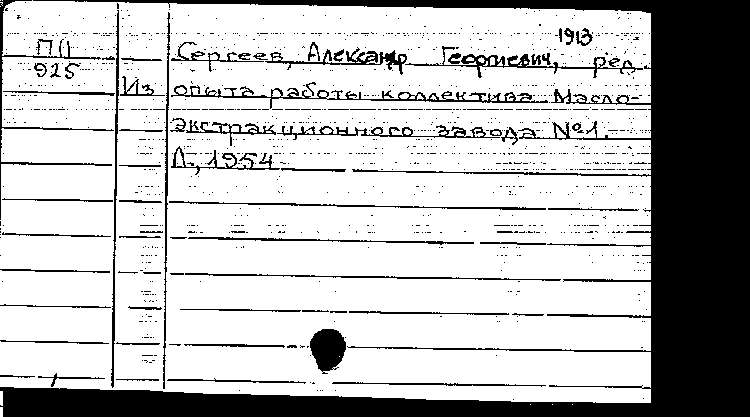 1913
П()
925
Сергеев, Александр Георгиевич, ред.
Из опыта работы коллектива Масло-
экстракционного завода №1.
Л., 1954